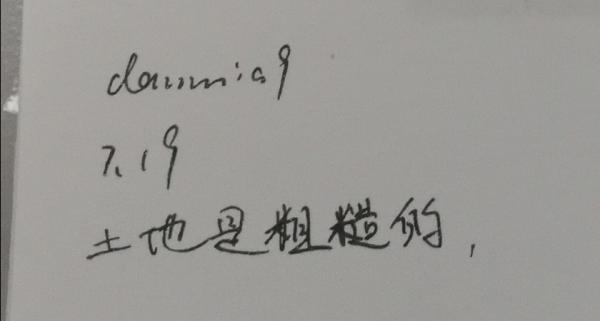 7.19
土地是粗糙的,